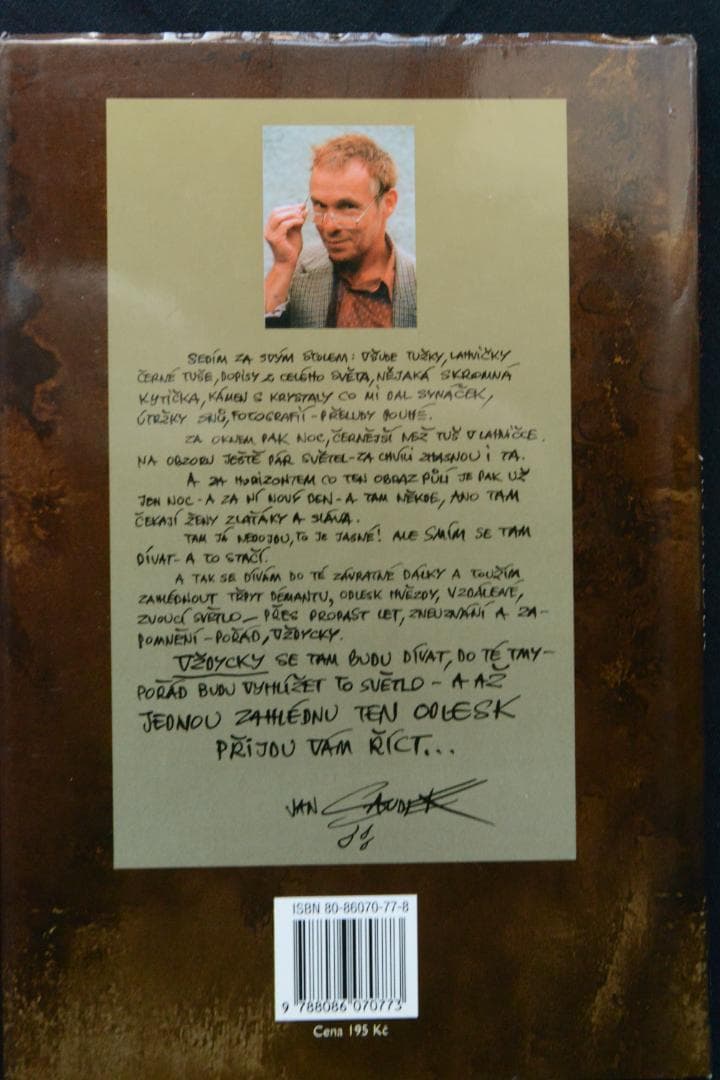 SEDÍM ZA SVÝM STOLEM: VŠUDE TUŽKY, LAHVIČKY
ČERNÉ TUŠE, DOPISY Z CELÉHO SVĚTA, NĚJAKÁ SKROMNÁ
KYTIČKA, KÁMEN S KRYSTALY CO MI DAL SYNÁČEK,
ÚTRŽKY SNŮ, FOTOGRAFIÍ - PŘELUDY POUHÉ.
ZA OKNEM PAK NOC, ČERNĚJŠÍ NEŽ TUŠ V LAHVIČCE.
NA OBZORU JEŠTĚ PÁR SVĚTEL - ZA CHVÍLI ZHASNOU I TA.
A ZA HORIZONTEM CO TEN OBRAZ PŮLÍ JE PAK UŽ
JEN NOC - A ZA NÍ NOVÝ DEN - A TAM NĚKDE, ANO TAM
ČEKAJÍ ŽENY ZLAŤÁKY A SLÁVA.
TAM JÁ NEDOJDU, TO JE JASNÉ! ALE SMÍM SE TAM
DÍVAT - A TO STAČÍ.
A TAK SE DÍVÁM DO TÉ ZÁVRATNÉ DÁLKY A TOUŽÍM
ZAHLÉDNOUT TŘPYT DÉMANTU, ODLESK HVĚZDY, VZDÁLENÉ,
ZVOUCÍ SVĚTLO - PŘES PROPAST LET, ZNEUZNÁNÍ A ZA-
POMNĚNÍ - POŘÁD, VŽDYCKY.
VŽDYCKY SE TAM BUDU DÍVAT, DO TÉ TMY -
POŘÁD BUDU VYHLÍŽET TO SVĚTLO - A AŽ
JEDNOU ZAHLÉDNU TEN ODLESK
PŘIJDU VÁM ŘÍCT...
JAN SAUDEK
ISBN 80-86070-77-8
9 788086 070773
Cena 195 Kč